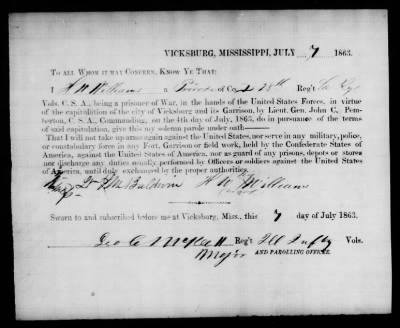 VICKSBURG, MISSISSIPPI, JULY 7 1863.
TO ALL WHOM IT MAY CONCERN, KNOW YE THAT:
I H W Williams a Private of Co. 28th Reg't La
Vols. C. S. A., being a prisoner of War, in the hands of the United States Forces, in virtue
of the capitulation of the city of Vicksburg and its Garrison, by Lieut. Gen. John C. Pem-
berton, C. S. A., Commanding, on the 4th day of July, 1863, do in pursuance of the terms
of said capitulation, give this my solemn parole under oath—
That I will not take up arms again against the United States, nor serve in any military, police,
or constabulary force in any Fort, Garrison or field work, held by the Confederate States
of America, against the United States of America, nor as guard of any prisons, depots or stores
nor discharge any duties usually performed by Officers or soldiers against the United States
of America, until duly exchanged by the proper authorities.
Baldwin H W Williams
Sworn to and subscribed before me at Vicksburg, Miss., this 7 day of July 1863.
Geo C McKee Reg't Ill Vols.
Major AND PAROLLING OFFICER.